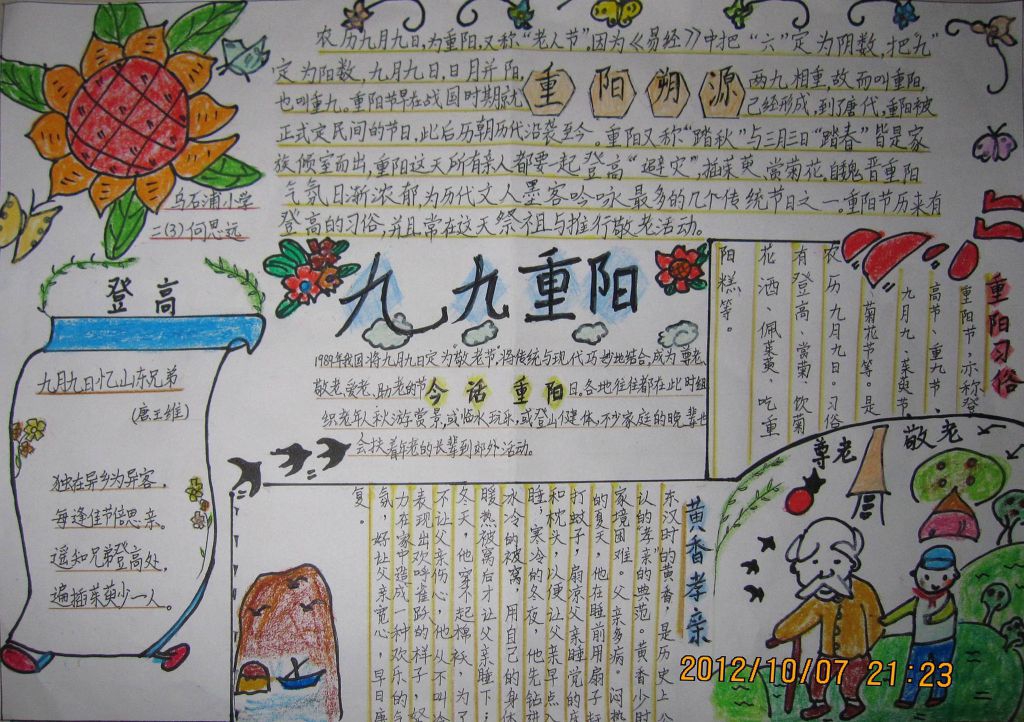 农历九月九日,为重阳,又称“老人节”,因为《易经》中把“六”定为阴数,把“九”
定为阳数,九月九日,日月并阳,
两九,相重,故而叫重阳,
重阳朔源
也叫重九。重阳节早在战国时期就尤
己经形成,到了唐代,重阳被
正式定民间的节日,此后历朝历代沿袭至今。重阳又称“踏秋”与三月三日“踏春”皆是家
族倾室而出,重阳这天所有亲人都要一起登高“避灾”,插茱萸、赏菊花。自魏晋重阳
气氛日渐浓郁,为历代文人墨客吟咏最多的几个传统节日之一。重阳节历来有
登高的习俗,并且常在这天祭祖与推行敬老活动。
乌石浦小学
二(3)何思远
登高
九月九日忆山东兄弟
(唐王维)
独在异乡为异客,
每逢佳节倍思亲。
遥知兄弟登高处,
遍插茱萸少一人。
九九重阳
1989年我国将九月九日定为“敬老节”,将传统与现代巧妙地结合,成为尊老、
敬老、爱老、助老的节
今话重阳
日。各地往往都在此时组
织老年人秋游赏景,或临水玩乐,或登山健体,不少家庭的晚辈也
会扶着年老的长辈到郊外活动。
重阳习俗
重阳节,亦称登
高节、重九节、
九月九、茱萸节、
菊花节等。是
农历九月九日。习俗
有登高、赏菊、饮菊
花酒、佩茱萸、吃重
阳糕等。
尊老
敬老
黄香孝亲
东汉时的黄香,是历史上公
认的“孝亲”的典范。黄香少时
家境困难。父亲多病。闷热
的夏天,他在睡前用扇子赶
打蚊子,扇凉父亲睡觉的床
和枕头,以便让父亲早点入
睡,寒冷的冬夜,他先钻进
冰冷的被窝,用自己的身体
暖热被窝后才让父亲睡下;
冬天,他穿不起棉袄,为了
不让父亲伤心,他从不叫冷
表现出欢呼雀跃的样子,努
力在家中造成一种欢乐的气
氛,好让父亲宽心,早日康
复。
2012/10/07 21:23